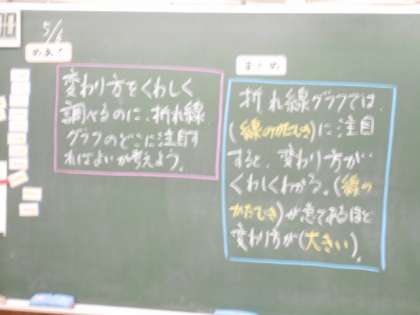 5/6
めあて
変わり方をくわしく
調べるのに、折れ線
グラフのどこに注目す
ればよいか考えよう。
まとめ
折れ線グラフでは、
(線のかたむき)に注目
すると、変わり方が
くわしくわかる。(線の
かたむき)が急であるほど
変わり方が(大きい)。